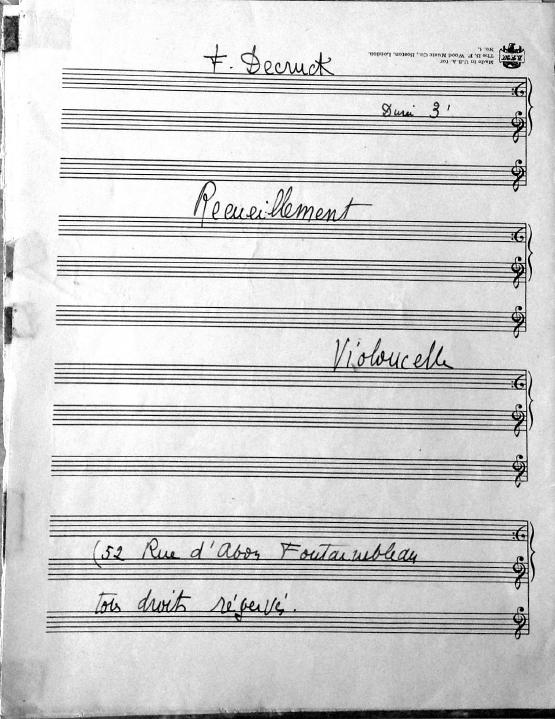 F. Decruck
Made in U.S.A. for
The B. F. Wood Music Co., Boston, London.
No. 1.
Durée 3'
Recueillement
Violoncelle
(52 Rue d'Abon Fontainebleau
tous droits réservés.